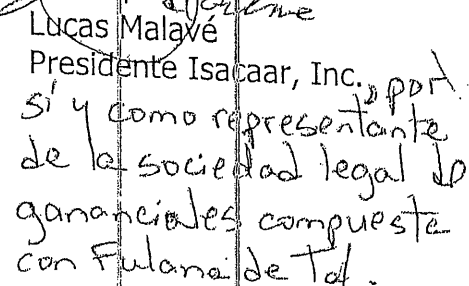 Lucas Malavé
Presidente Isacaar, Inc., por
sí y como representante
de la sociedad legal de
gananciales compuesta
con Fulana de Tal.